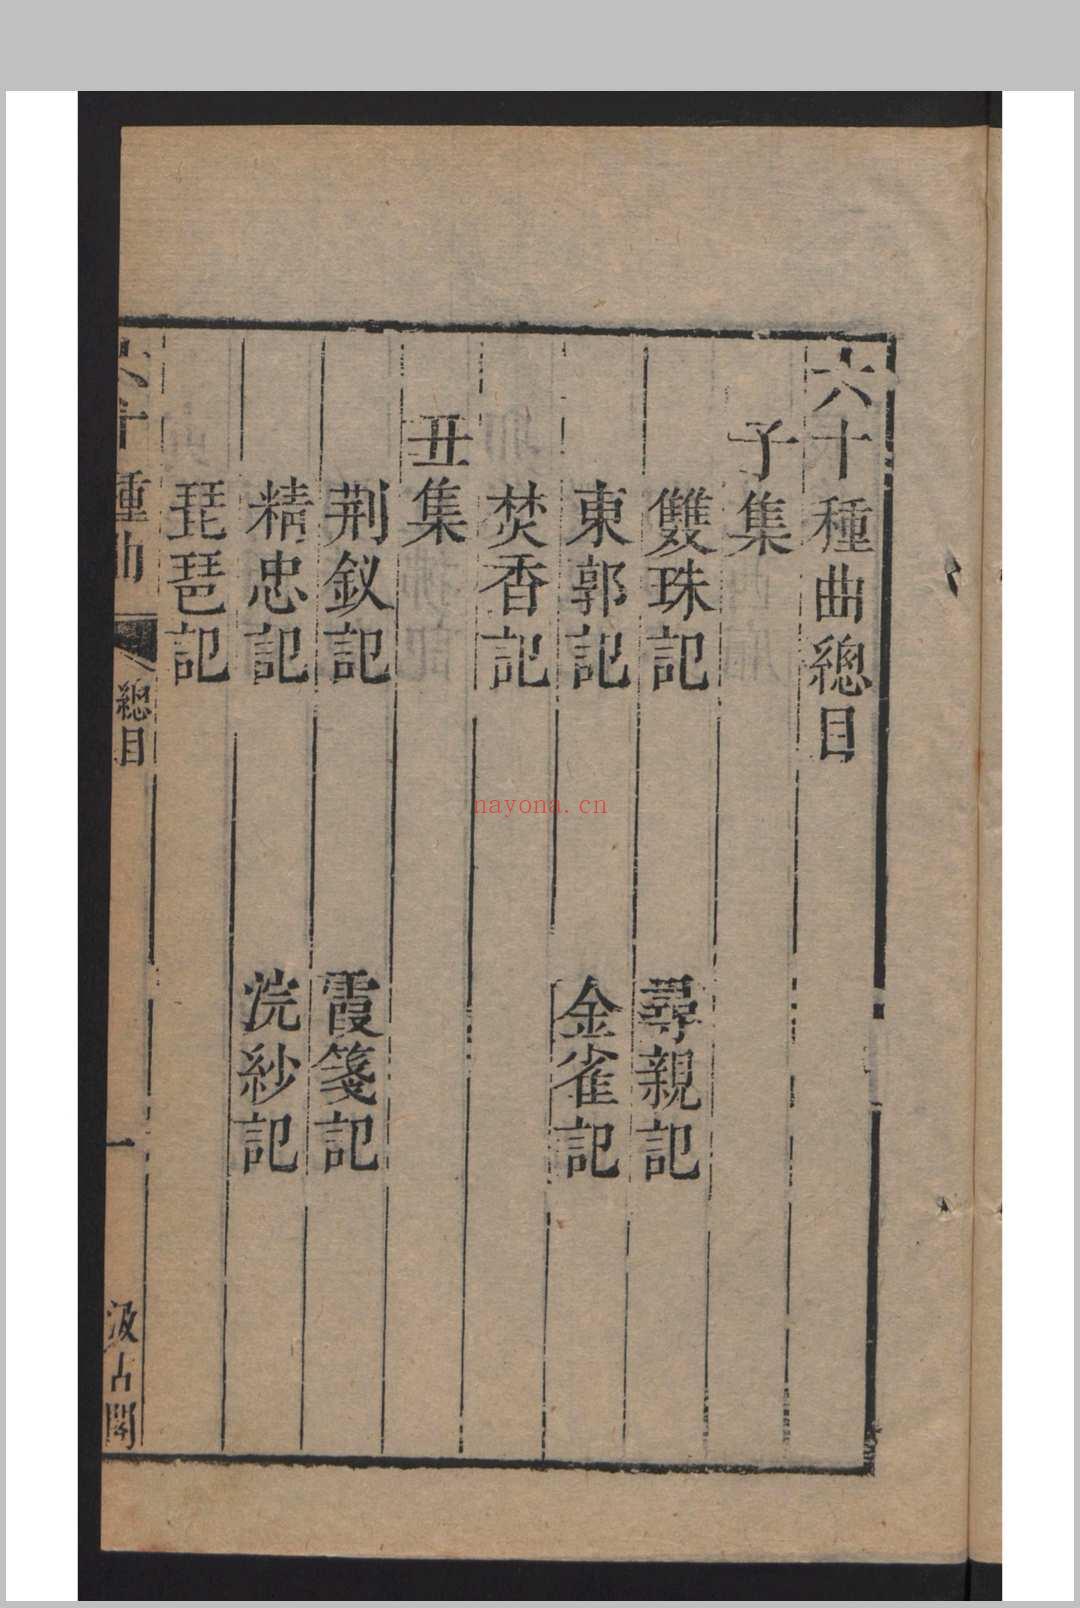 六十種曲總目
子集
雙珠記 尋親記
東郭記 金雀記
焚香記
丑集
荆釵記 霞箋記
精忠記 浣紗記
琵琶記
六十種曲 總目 一 汲古閣
nayona.cn